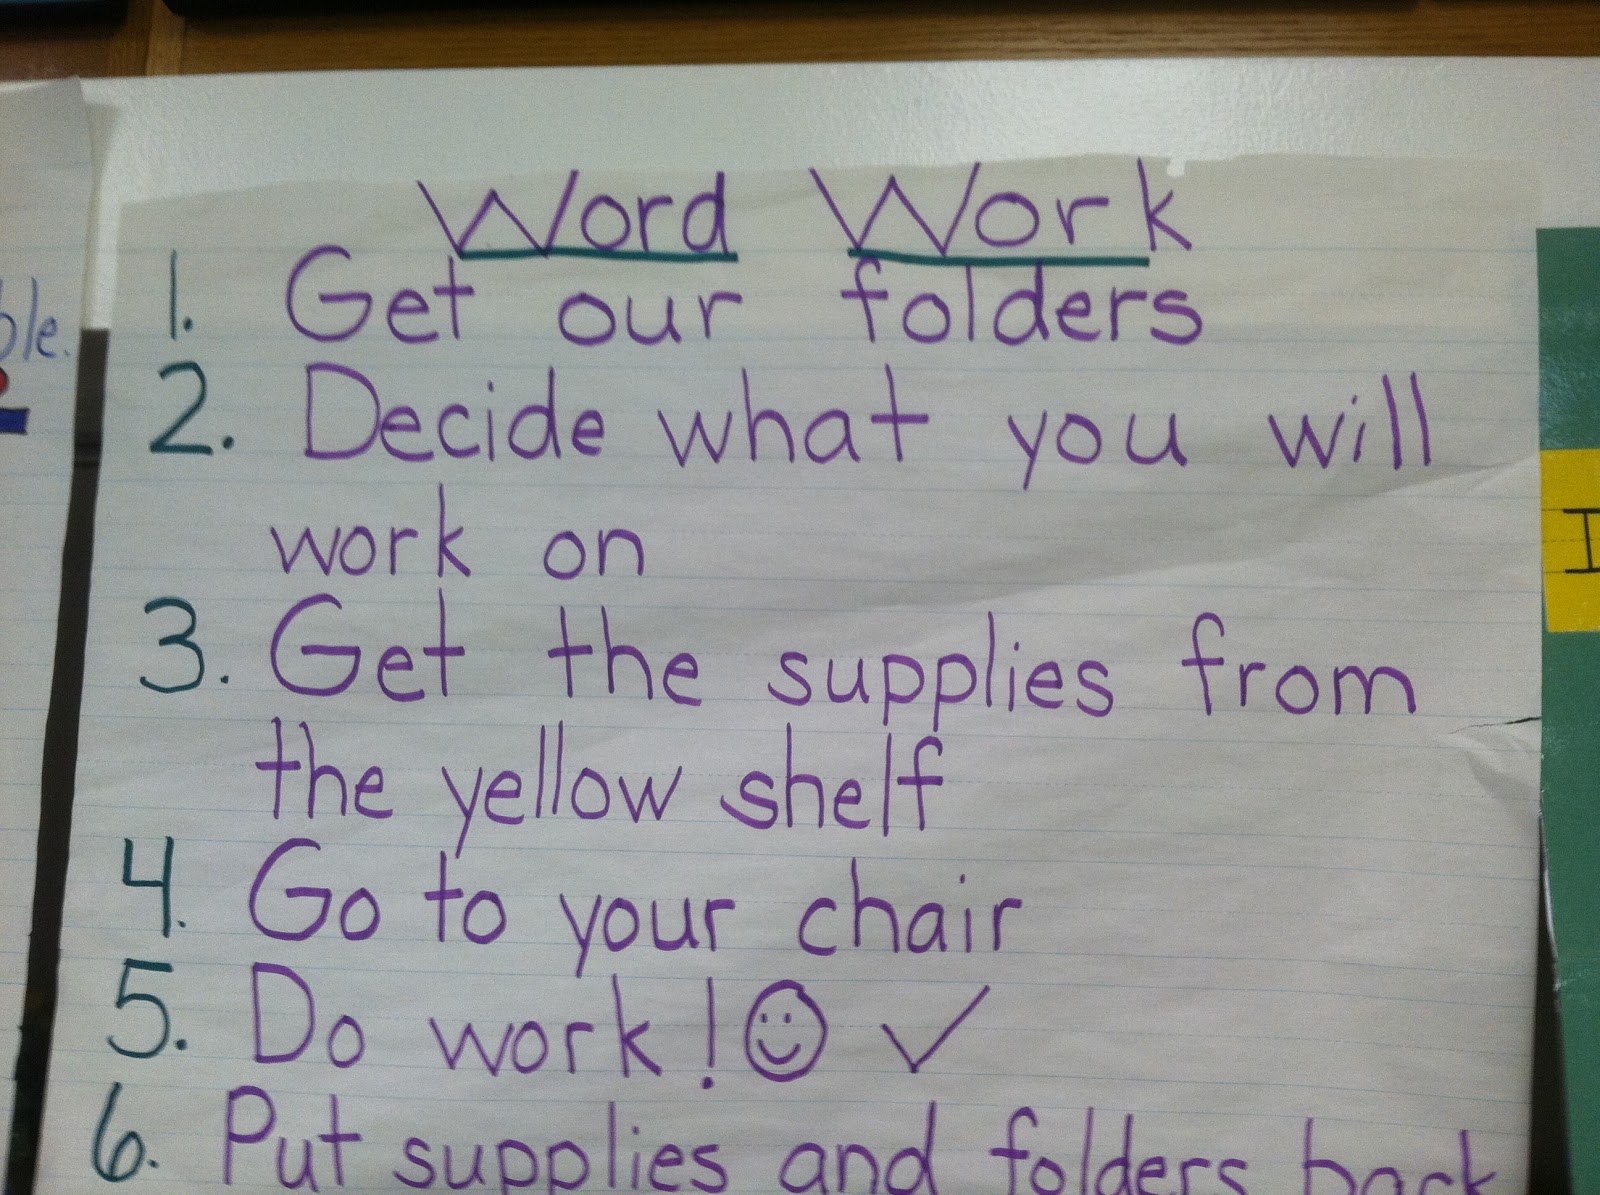 Word Work
1. Get our folders
2. Decide what you will
work on
3. Get the supplies from
the yellow shelf
4. Go to your chair
5. Do work! ☺ ✓
6. Put supplies and folders back
ble.
I